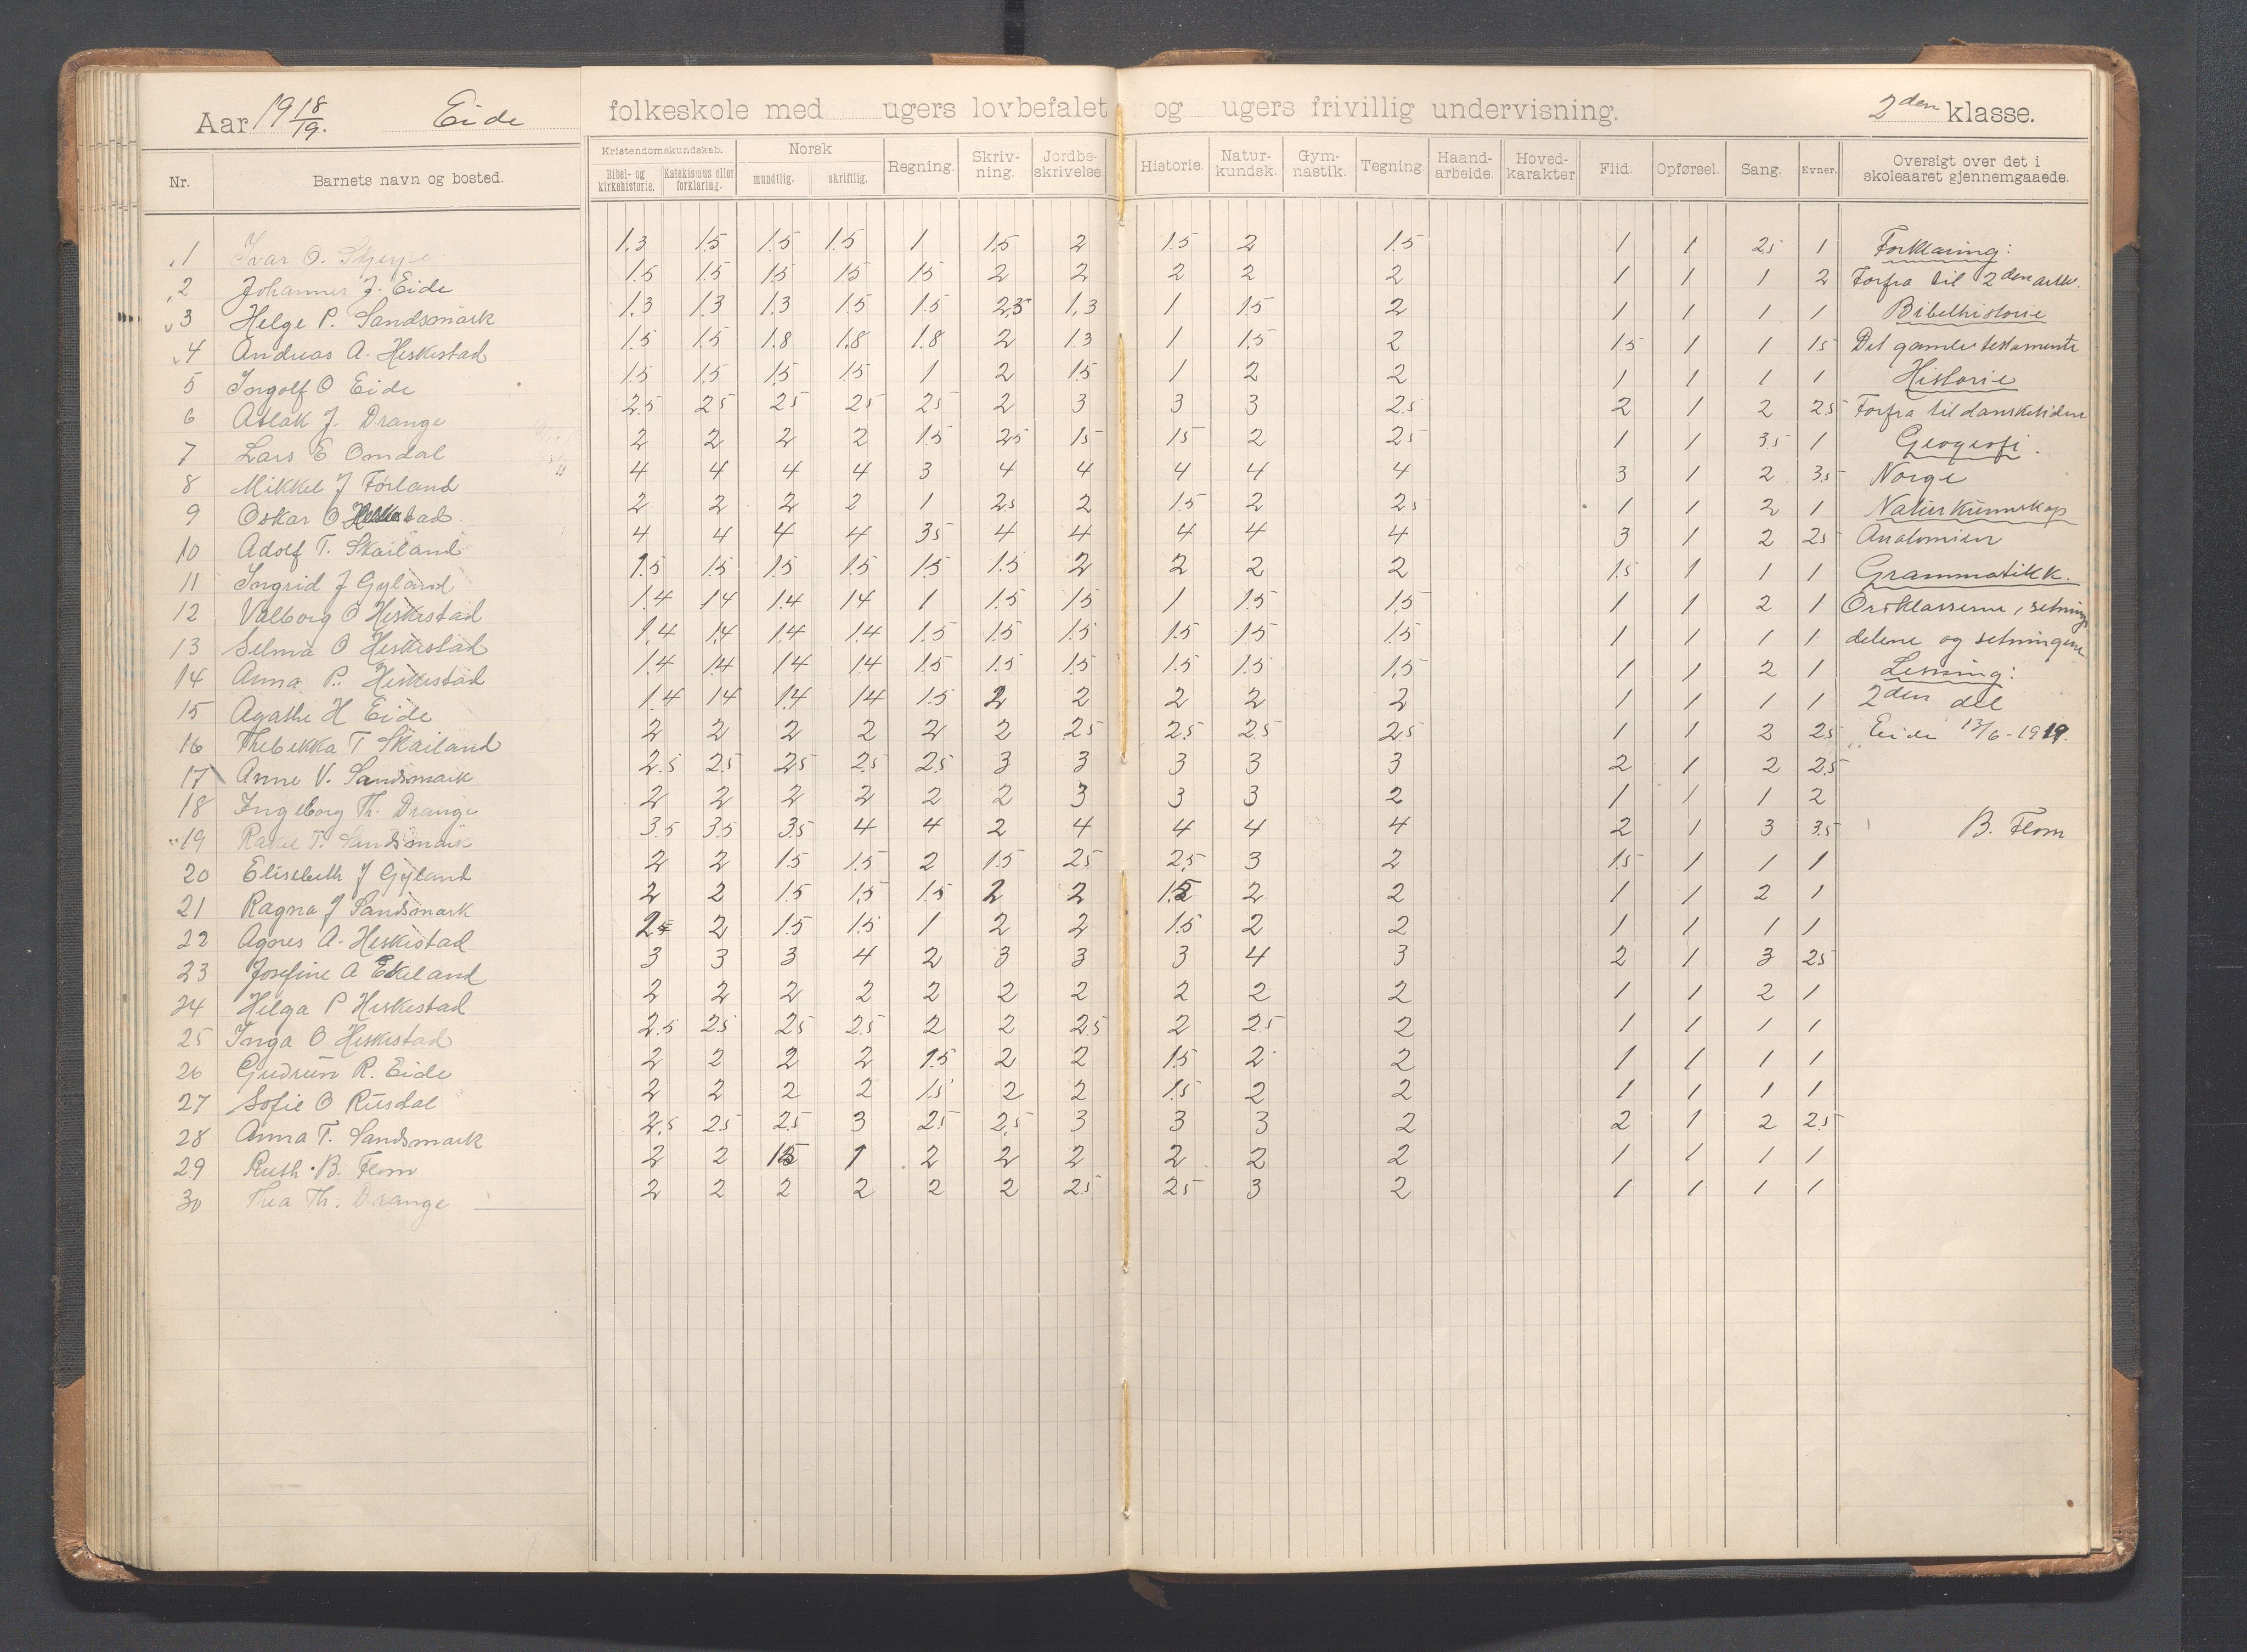 Aar 1918/19. Eide folkeskole med ugers lovbefalet og ugers frivillig undervisning. 2den klasse.
Nr. Barnets navn og bosted. Kristendomskundskab. Bibel- og kirkehistorie. Katekismus eller forklaring. Norsk mundtlig. skriftlig. Regning. Skriv-ning. Jordbe-skrivelse. Historie. Natur-kundsk. Gym-nastik. Tegning. Haand-arbeide. Hoved-karakter Flid. Opførsel. Sang. Evner. Oversigt over det i skoleaaret gjennemgaaede.
1 Ivar O. 1,3 1.5 1.5 1.5 1 1.5 2 1.5 2 1.5 1 1 2.5 1 Forklaring:
2 Johannes J. Eide 1.5 1.5 1.5 1.5 1.5 2 2 2 2 2 1 1 1 2 Forfra til 2den artk.
3 Helge P. Sandsmark 1,3 1,3 1,3 1.5 1.5 2,5 1,3 1 1.5 2 1 1 1 1 Bibelhistorie
4 Andreas A. Heskestad 1.5 1.5 1.8 1,8 1.8 2 1.3 1 1.5 2 1.5 1 1 1.5 Det gamle testamente
5 Ingolf O Eide 1.5 1.5 1.5 1.5 1 2 1.5 1 2 2 1 1 1 1 Historie
6 Aslak J. Drange 2.5 2.5 2.5 2.5 2.5 2 3 3 3 2.5 2 1 2 2.5 Forfra til dansketiden
7 Lars E Omdal 2 2 2 2 1.5 2.5 1.5 1.5 2 2.5 1 1 3.5 1 Geografi.
8 Mikkel J Förland 4 4 4 4 3 4 4 4 4 4 3 1 2 3.5 Norge
9 Oskar O Heskestad 2 2 2 2 1 2.5 2 1.5 2 2.5 1 1 2 1 Naturkunnskap
10 Adolf T. Skailand 4 4 4 4 3.5 4 4 4 4 4 3 1 2 2.5 Anatomien
11 Ingrid J Gyland 1.5 1.5 1.5 1.5 1.5 1.5 2 2 2 2 1.5 1 1 1 Grammatikk.
12 Valborg O Heskestad 1.4 1.4 1.4 1.4 1 1.5 1.5 1 1.5 1.5 1 1 2 1 Ordklasserne, setnings
13 Selma O Heskestad 1,4 1.4 1.4 1.4 1.5 1.5 1.5 1.5 1.5 1.5 1 1 1 1 delene og setningene
14 Anna P. Heskestad 1.4 1.4 1.4 1.4 1.5 1.5 1.5 1.5 1.5 1,5 1 1 2 1 Lesning:
15 Agathe H Eide 1.4 1.4 1.4 1.4 1.5 2 2 2 2 2 1 1 1 1 2den del
16 Thebekka T Skailand 2 2 2 2 2 2 2.5 2.5 2.5 2.5 1 1 2 2.5 Eide 13/6-1919.
17 Anne V. Sandsmark 2.5 2.5 2.5 2.5 2.5 3 3 3 3 3 2 1 2 2.5
18 Ingeborg Th. Drange 2 2 2 2 2 2 3 3 3 2 1 1 1 2
19 Rakel T. Sandsmark 3.5 3.5 3.5 4 4 2 4 4 4 4 2 1 3 3.5 B. Flom
20 Elisebeth J Gyland 2 2 1.5 1.5 2 1.5 2.5 2.5 3 2 1.5 1 1 1
21 Ragna J Sandsmark 2 2 1.5 1.5 1.5 2 2 1.5 2 2 1 1 2 1
22 Agnes A. Heskestad 2.5 2 1.5 1.5 1 2 2 1.5 2 2 1 1 1 1
23 Josefine A Ekeland 3 3 3 4 2 3 3 3 4 3 2 1 3 2.5
24 Helga P Heskestad 2 2 2 2 2 2 2 2 2 2 1 1 2 1
25 Inga O Heskestad 2.5 2.5 2.5 2.5 2 2 2.5 2 2.5 2 1 1 1 1
26 Gudrun R. Eide 2 2 2 2 1.5 2 2 1.5 2 2 1 1 1 1
27 Sofie O Rusdal 2 2 2 2 1.5 2 2 1.5 2 2 1 1 1 1
28 Anna T. Sandsmark 2.5 2.5 2.5 3 2.5 2.5 3 3 3 2 2 1 2 2.5
29 Ruth B. Flom 2 2 1.5 1 2 2 2 2 2 2 1 1 1 1
30 Thea Th. Drange 2 2 2 2 2 2 2.5 2.5 3 2 1 1 1 1